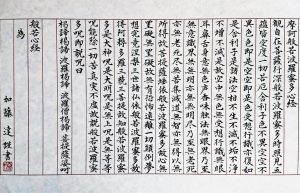 摩訶般若波羅蜜多心経
観自在菩薩行深般若波羅蜜多時照見五
蘊皆空度一切苦厄舎利子色不異空空不
異色色即是空空即是色受想行識亦復如
是舎利子是諸法空相不生不滅不垢不浄
不増不減是故空中無色無受想行識無眼
耳鼻舌身意無色声香味触法無眼界乃至
無意識界無無明亦無無明尽乃至無老死
亦無老死尽無苦集滅道無智亦無得以無
所得故菩提薩埵依般若波羅蜜多故心無
罣礙無罣礙故無有恐怖遠離一切顛倒夢
想究竟涅槃三世諸仏依般若波羅蜜多故
得阿耨多羅三藐三菩提故知般若波羅蜜
多是大神呪是大明呪是無上呪是無等等
呪能除一切苦真実不虚故説般若波羅蜜
多呪即説呪曰
羯諦羯諦 波羅羯諦 波羅僧羯諦 菩提薩婆訶
般若心経
為
加藤達 書